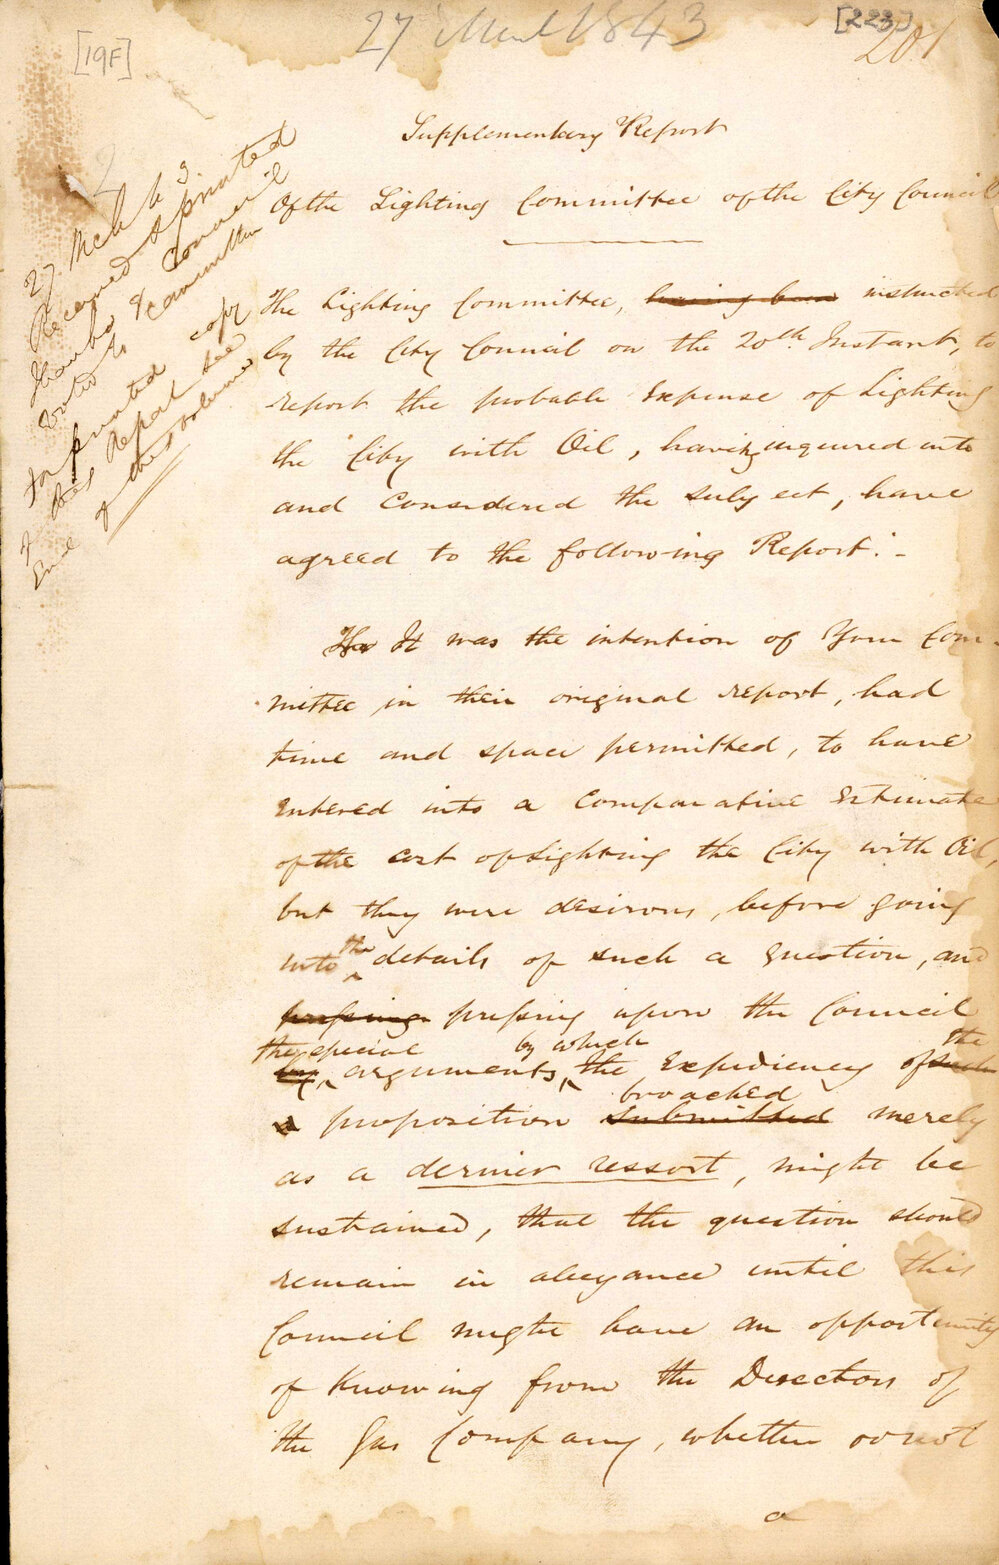 27 March 1843
[223]
201
[19F]
2
Supplementary Report
Of the Lighting Committee of the City Council
27 Mch 43
Received & printed
Council
& committee
For printed copy
of this Report see
End of this volume
The Lighting Committee, having been instructed
by the City Council on the 20th Instant, to
report the probable Expense of Lighting
the City with Oil, having inquired into
and Considered the subject, have
agreed to the following Report:-
The It was the intention of Your Com-
mittee in their original report, had
time and space permitted, to have
Entered into a Comparative Estimate
of the cost of Lighting the City with Oil,
but they were desirous, before going
into the details of such a question, and
pressing pressing upon the Council
the special by which the
arguments, the Expediency of such
broached
a proposition submitted merely
as a dernier ressort, might be
sustained, that the question should
remain in abeyance until this
Council might have an opportunity
of Knowing from the Directors of
the Gas Company, whether or not
a